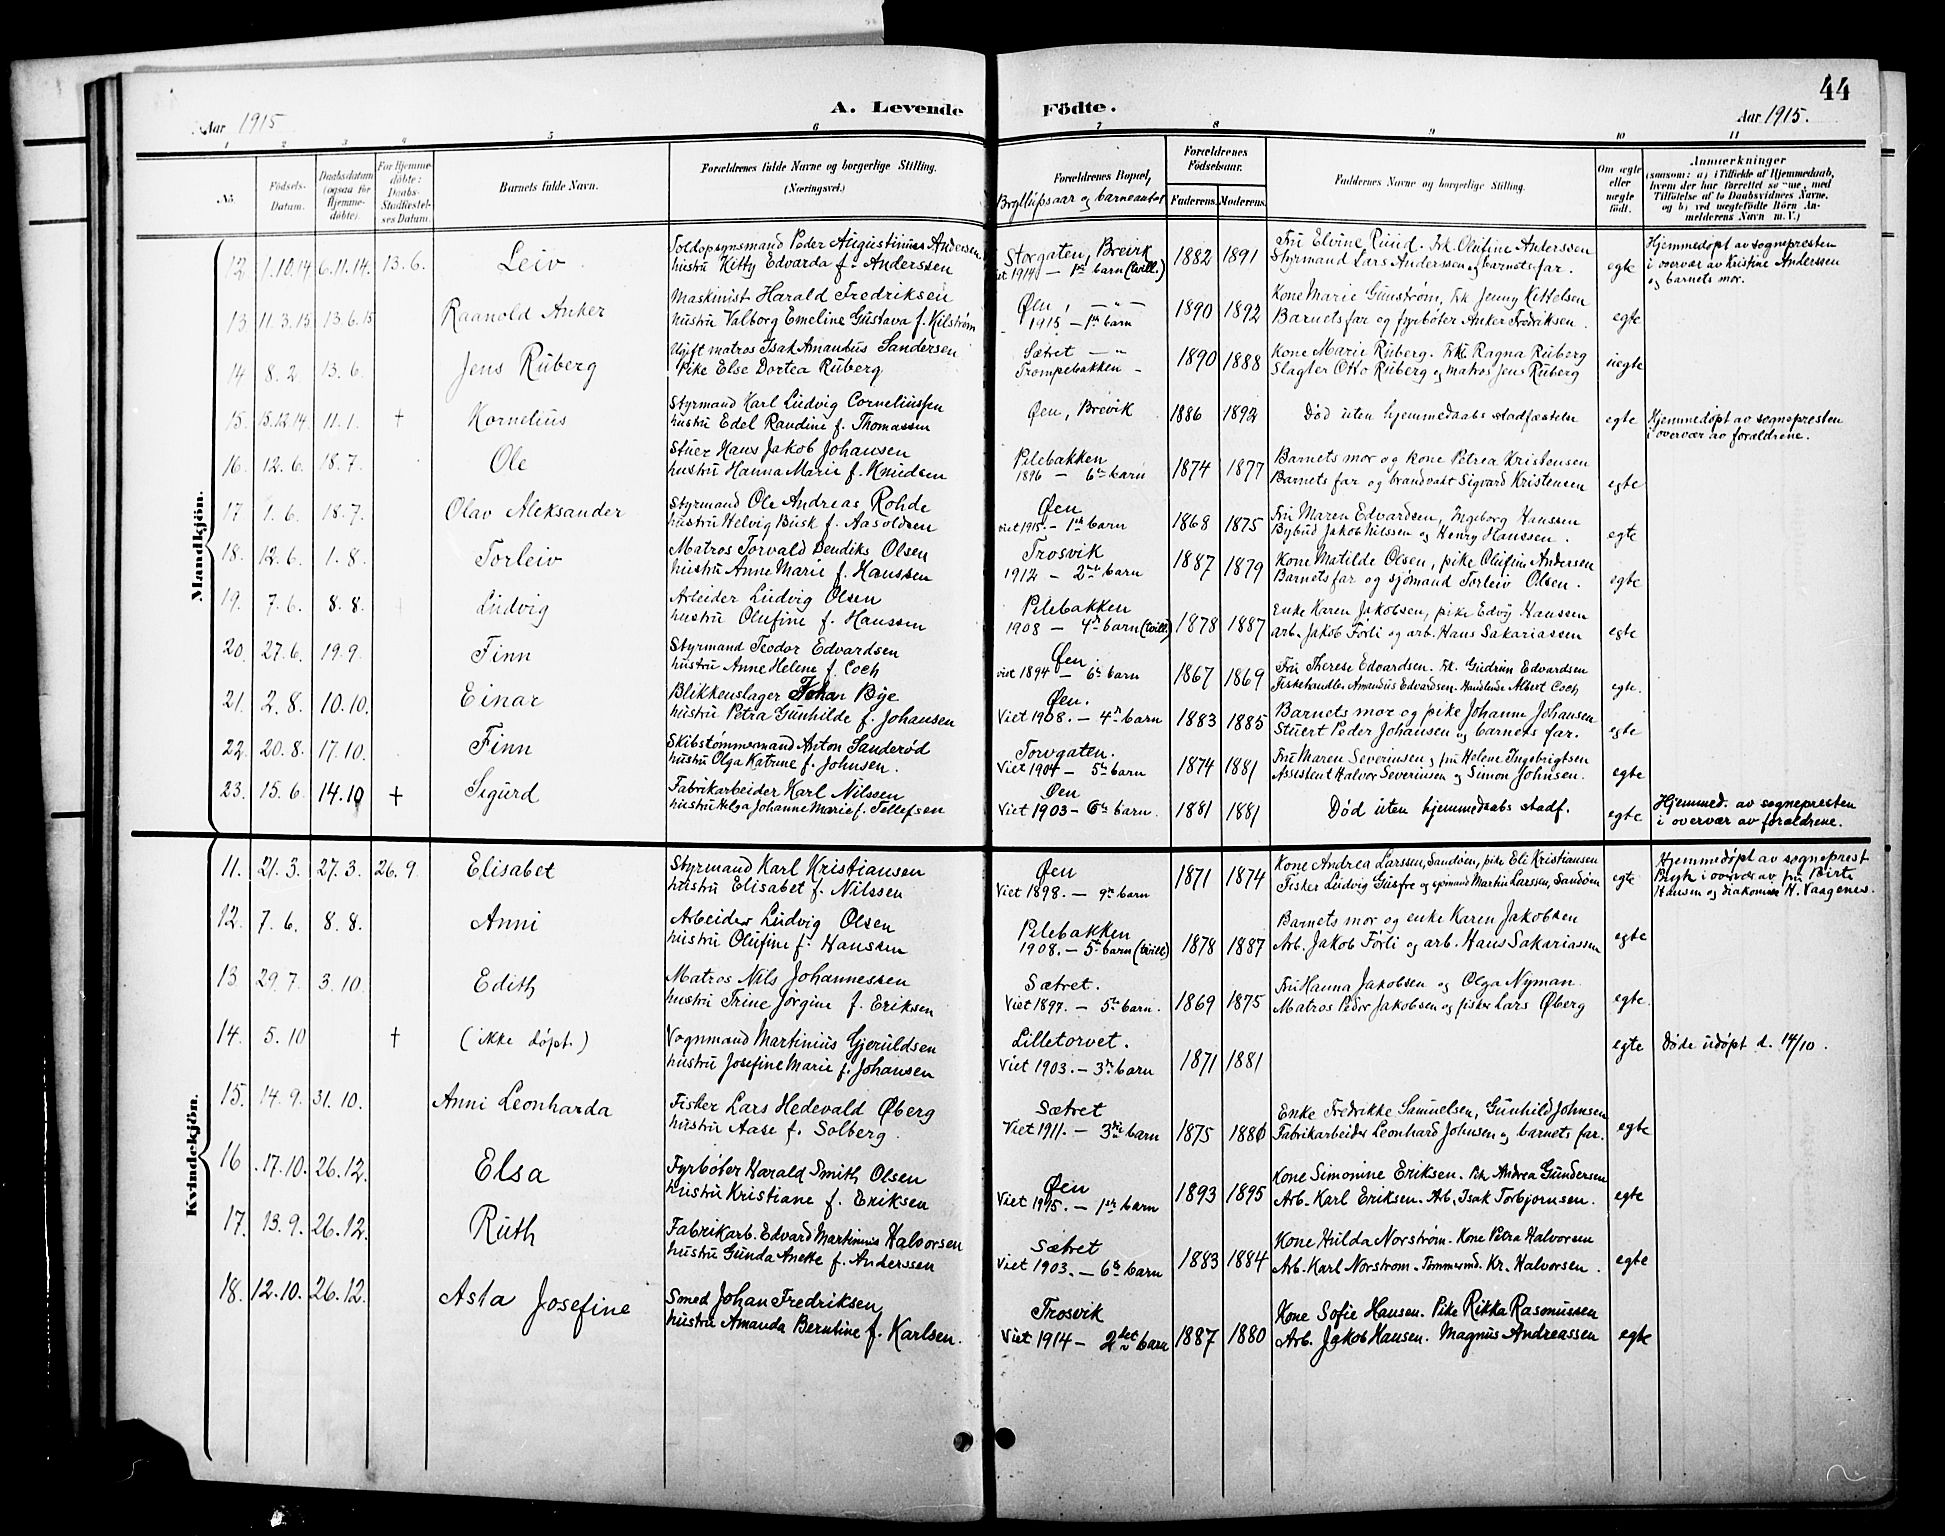 44
Aar 1915
A. Levende Födte.
Aar 1915.
1 2 3 4 5 6 7 8 9 10 11
No.
Födsels-Datum.
Daabsdatum (ogsaa for Hjemme-döbte).
For Hjemme-döbte: Daabs-Stadfæstel-ses Datum.
Barnets fulde Navn.
Forældrenes fulde Navne og borgerlige Stilling.
(Næringsvei.)
Forældrenes Bopæl,
Bryllupsaar og barneantal
Forældrenes Födselsaar.
Faderens. Moderens.
Faddernes Navne og borgerlige Stilling.
Om ægte eller uægte födt.
Anmærkninger
(saasom: a) i Tilfælde af Hjemmedaab,
hvem der har forrettet samme, med
Tilföielse af to Daabsvidners Navne.
og b) ved uægtefödte Börn An-
melderens Navn m. V.)
Mandkjön.
12. 1.10.14 6.11.14. 13.6. Leiv
Toldopsynsmand Peder Augustinius Andersen
hustru Kitty Edvarda f. Anderssen
Storgaten, Brevik
1914 – 1ste barn (tvill.) 1882 1891
Fru Elvine Ruud. Frk. Olufine Anderssen
Styrmand Lars Anderssen og barnets far. egte
Hjemmedøpt av sognepresten
i overvær av Kristine Anderssen
og barnets mor.
13 11.3.15 13.6.15 Raanold Anker
Maskinist Harald Fredriksen
hustru Valborg Emeline Gustava f. Kilstrøm
Øen, – " –
1915 – 1ste barn 1890 1892
Kone Marie Gunstrøm, Frk. Jenny Kittelsen
Barnets far og fyrbøter Anker Fredriksen. egte
14 8.2. 13.6. Jens Ruberg
Ugift matros Isak Amandus Sandersen
Pike Else Dortea Ruberg
Sætret – "
Trompebakken – 1890 1888
Kone Marie Ruberg. Frk. Ragna Ruberg
Slagter Otto Ruberg og matros Jens Ruberg uegte
15. 15.12.14. 11.1. + Kornelius
Styrmand Karl Ludvig Corneliussen
hustru Edel Randine f. Thomassen
Øen, Brevik 1886 1892
Død uten hjemmedaabs stadfæstelse egte
Hjemmedøpt av sognepresten
i overvær av forældrene.
16. 12.6. 18.7. Ole
Stuer Hans Jakob Johansen
hustru Hanna Marie f. Knudsen
Pilebakken
1896 – 6te barn 1874 1877
Barnets mor og kone Petrea Kristensen
Barnets far og brandvakt Sigvard Kristensen egte
17 1.6. 18.7. Olav Aleksander
Styrmand Ole Andreas Rohde
hustru Helvig Busk f. Aasoldsen
Øen
viet 1915. – 1ste barn 1868 1875
Fru Maren Edvardsen, Ingeborg Hanssen
Bybud Jakob Nilssen og Henry Hanssen. egte
18. 12.6. 1.8. Torleiv
Matros Torvald Bendiks Olsen
hustru Anne Marie f. Hanssen
Trosvik
1912 – 2net barn 1887 1879
Kone Matilde Olsen, pike Olufine Andersen
Barnets far og sjømand Torleiv Olsen. egte
19. 7.6. 8.8. Ludvig
Arbeider Ludvig Olsen
hustru Olufine f. Hanssen
Pilebakken
1908 – 4de barn (tvill) 1878 1887
Enke Karen Jakobsen, pike Edvy Hanssen
arb. Jakob Førli og arb. Hans Sakariassen egte
20. 27.6. 19.9. Finn
Styrmand Teodor Edvardsen
hustru Anne Helene f. Coch
Øen.
viet 1894 – 6te barn 1867 1869
Fru Therese Edvardsen. Frk. Gudrun Edvardsen
Fiskehandler Amandus Edvardsen. Handlende Albert Coch egte.
21. 2.8. 10.10. Einar
Blikkenslager Johan Bye
hustru Petra Gunhilde f. Johansen
Øen.
Viet 1908. – 4de barn 1883 1885
Barnets mor og pike Johanne Johansen
Stuert Peder Johansen og barnets far. egte
22. 20.8. 17.10. Finn
Skibstømmermand Anton Sanderød
hustru Olga Katrine f. Johnsen.
Torvgaten.
Viet 1904 – 5te barn 1874 1881
Fru Maren Severinsen, fru Helene Ingebrigtsen
Assistent Halvor Severinsen og Simon Johnsen. egte
23. 15.6 14.10 + Sigurd
Fabrikarbeider Karl Nilssen
hustru Helga Johanne Marie f. Tellefsen
Øen
Viet 1903 – 6te barn. 1881 1881
Død uten hjemmedaabs stadf. egte
Hjemmed. av sognepresten
i overvær av forældrene.
Kvindekjön.
11. 21.3. 27.3. 26.9. Elisabet
Styrmand Karl Kristiansen
hustru Elisabet f. Nilssen
Øen
Viet 1898. – 9de barn 1871 1874
Kone Andrea Larssen, Sandøen, pike Eli Kristiansen
Fisker Ludvig Gusfre og sjømand Martin Larssen, Sandøen egte
Hjemmedøpt av sogneprest
Bugh i overvær av fru Birte
Hansen og diakonisse H. Vaagenes.
12. 7.6. 8.8. Anni
Arbeider Ludvig Olsen
hustru Olufine f. Hanssen
Pilebakken
1908. – 5te barn (tvill) 1878 1887
Barnets mor og enke Karen Jakobsen
Arb. Jakob Førli og arb. Hans Sakariassen egte
13 29.7. 3.10. Edith
Matros Nils Johannessen
hustru Trine Jørgine f. Eriksen
Sætret.
Viet 1897. – 5te barn. 1869 1875
Fru Hanna Jakobsen og Olga Nyman
Matros Peder Jakobsen og fisker Lars Øberg egte.
14. 5.10 + (ikke døpt.)
Vognmand Martinius Gjeruldsen
hustru Josefine Marie f. Johansen
Lilletorvet.
Viet 1903. – 3de barn 1871 1881
egte Døde udøpt d. 14/10.
15. 14.9. 31.10. Anni Leonharda
Fisker Lars Hedevald Øberg
hustru Aase f. Solberg.
Sætret
Viet 1911. – 3die barn 1875 1880
Enke Fredrikke Samuelsen, Gunhild Johnsen
Fabrikarbeider Leonhard Johnsen og barnets far. egte
16 17.10. 26.12. Elsa
Fyrbøter Harald Smith Olsen
hustru Kristiane f. Eriksen
Øen
Viet 1915. – 1ste barn 1893 1895
Kone Simonine Eriksen. Pike Andrea Gundersen
Arb. Karl Eriksen. Arb. Isak Torbjørnsen. egte
17. 13.9. 26.12. Ruth
Fabrikarb. Edvard Martinius Halvorsen
hustru Gunda Anette f. Anderssen
Sætret
Viet 1903. – 6te barn 1883 1884
Kone Hilda Norstrøm. Kone Petra Halvorsen
Arb. Karl Norstrøm. Tømmermd. Kr. Halvorsen. egte
18. 12.10. 26.12. Asta Josefine
Smed Johan Fredriksen
hustru Amanda Berntine f. Karlsen.
Trosvik
Viet 1914 – 2det barn 1887 1880
Kone Sofie Hansen. Pike Rikka Rasmussen
Arb. Jakob Hansen. Magnus Andreassen egte